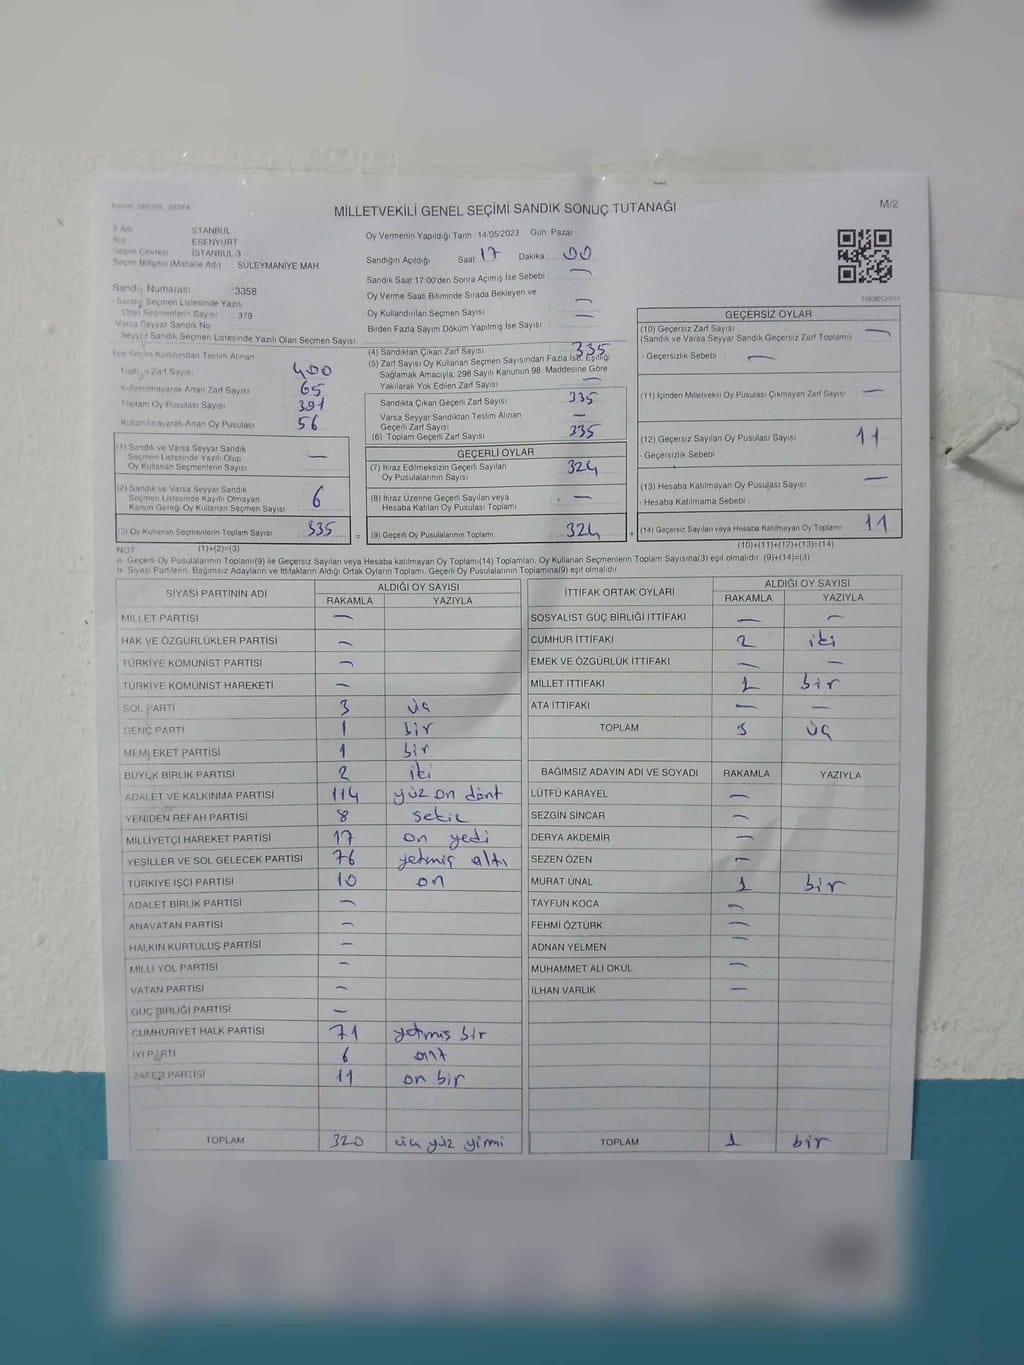 MİLLETVEKİLİ GENEL SEÇİMİ SANDIK SONUÇ TUTANAĞI
M/2
İl Adı : İSTANBUL
İlçe : ESENYURT
Seçim Çevresi : İSTANBUL-3
Seçim Bölgesi (Mahalle Adı) : SÜLEYMANİYE MAH
Oy Vermenin Yapıldığı Tarih : 14/05/2023 Gün: Pazar
Sandığın Açıldığı Saat: 17 Dakika : 00
Sandık Saat 17:00'den Sonra Açımış İse Sebebi : —
Oy Verme Saati Bitiminde Sırada Bekleyen ve
Oy Kullandırılan Seçmen Sayısı : —
Birden Fazla Sayım Döküm Yapılmış İse Sayısı : —
Sandık Numarası : 3358
Sandık Seçmen Listesinde Yazılı
Olan Seçmenlerin Sayısı : 379
Varsa Seyyar Sandık No
Seyyar Sandık Seçmen Listesinde Yazılı Olan Seçmen Sayısı :
İlçe Seçim Kurulundan Teslim Alınan
Toplam Zarf Sayısı : 400
Kullanılmayarak Artan Zarf Sayısı : 65
Toplam Oy Pusulası Sayısı : 391
Kullanılmayarak Artan Oy Pusulası : 56
(1) Sandık ve Varsa Seyyar Sandık
Seçmen Listesinde Yazılı Olup
Oy Kullanan Seçmenlerin Sayısı : —
(2) Sandık ve Varsa Seyyar Sandık
Seçmen Listesinde Kayıtlı Olmayan
Kanun Gereği Oy Kullanan Seçmen Sayısı : 6
(3) Oy Kullanan Seçmenlerin Toplam Sayısı : 335
(4) Sandıktan Çıkan Zarf Sayısı : 335
(5) Zarf Sayısı Oy Kullanan Seçmen Sayısından Fazla İse, Eşitliği
Sağlamak Amacıyla; 298 Sayılı Kanunun 98. Maddesine Göre
Yakılarak Yok Edilen Zarf Sayısı : —
Sandıkta Çıkan Geçerli Zarf Sayısı : 335
Varsa Seyyar Sandıktan Teslim Alınan
Geçerli Zarf Sayısı : —
(6) Toplam Geçerli Zarf Sayısı : 335
GEÇERLİ OYLAR
(7) İtiraz Edilmeksizin Geçerli Sayılan
Oy Pusulalarının Sayısı : 324
(8) İtiraz Üzerine Geçerli Sayılan veya
Hesaba Katılan Oy Pusulası Toplamı : —
= (9) Geçerli Oy Pusulalarının Toplamı : 324 +
1083652974
GEÇERSİZ OYLAR
(10) Geçersiz Zarf Sayısı : —
(Sandık ve Varsa Seyyar Sandık Geçersiz Zarf Toplamı)
- Geçersizlik Sebebi : —
(11) İçinden Milletvekili Oy Pusulası Çıkmayan Zarf Sayısı : —
(12) Geçersiz Sayılan Oy Pusulası Sayısı : 11
- Geçersizlik Sebebi :
(13) Hesaba Katılmayan Oy Pusulası Sayısı : —
- Hesaba Katılmama Sebebi :
(14) Geçersiz Sayılan veya Hesaba Katılmayan Oy Toplamı : 11
NOT (1)+(2)=(3) (10)+(11)+(12)+(13)=(14)
a- Geçerli Oy Pusulalarının Toplamı(9) ile Geçersiz Sayılan veya Hesaba katılmayan Oy Toplamı(14) Toplamları, Oy Kullanan Seçmenlerin Toplam Sayısına(3) eşit olmalıdır. (9)+(14)=(3)
b- Siyasi Partilerin, Bağımsız Adayların ve İttifakların Aldığı Ortak Oyların Toplamı, Geçerli Oy Pusulalarının Toplamına(9) eşit olmalıdır.
SİYASİ PARTİNİN ADI ALDIĞI OY SAYISI
RAKAMLA YAZIYLA
MİLLET PARTİSİ —
HAK VE ÖZGÜRLÜKLER PARTİSİ —
TÜRKİYE KOMÜNİST PARTİSİ —
TÜRKİYE KOMÜNİST HAREKETİ —
SOL PARTİ 3 üç
GENÇ PARTİ 1 bir
MEMLEKET PARTİSİ 1 bir
BÜYÜK BİRLİK PARTİSİ 2 iki
ADALET VE KALKINMA PARTİSİ 114 yüz on dört
YENİDEN REFAH PARTİSİ 8 sekiz
MİLLİYETÇİ HAREKET PARTİSİ 17 on yedi
YEŞİLLER VE SOL GELECEK PARTİSİ 76 yetmiş altı
TÜRKİYE İŞÇİ PARTİSİ 10 on
ADALET BİRLİK PARTİSİ —
ANAVATAN PARTİSİ —
HALKIN KURTULUŞ PARTİSİ —
MİLLİ YOL PARTİSİ —
VATAN PARTİSİ —
GÜÇ BİRLİĞİ PARTİSİ —
CUMHURİYET HALK PARTİSİ 71 yetmiş bir
İYİ PARTİ 6 altı
ZAFER PARTİSİ 11 on bir
TOPLAM 320 üç yüz yirmi
İTTİFAK ORTAK OYLARI ALDIĞI OY SAYISI
RAKAMLA YAZIYLA
SOSYALİST GÜÇ BİRLİĞİ İTTİFAKI — —
CUMHUR İTTİFAKI 2 iki
EMEK VE ÖZGÜRLÜK İTTİFAKI — —
MİLLET İTTİFAKI 1 bir
ATA İTTİFAKI — —
TOPLAM 3 üç
BAĞIMSIZ ADAYIN ADI VE SOYADI RAKAMLA YAZIYLA
LÜTFÜ KARAYEL —
SEZGİN SİNCAR —
DERYA AKDEMİR —
SEZEN ÖZEN —
MURAT ÜNAL 1 bir
TAYFUN KOCA —
FEHMİ ÖZTÜRK —
ADNAN YELMEN —
MUHAMMET ALİ OKUL —
İLHAN VARLIK —
TOPLAM 1 bir